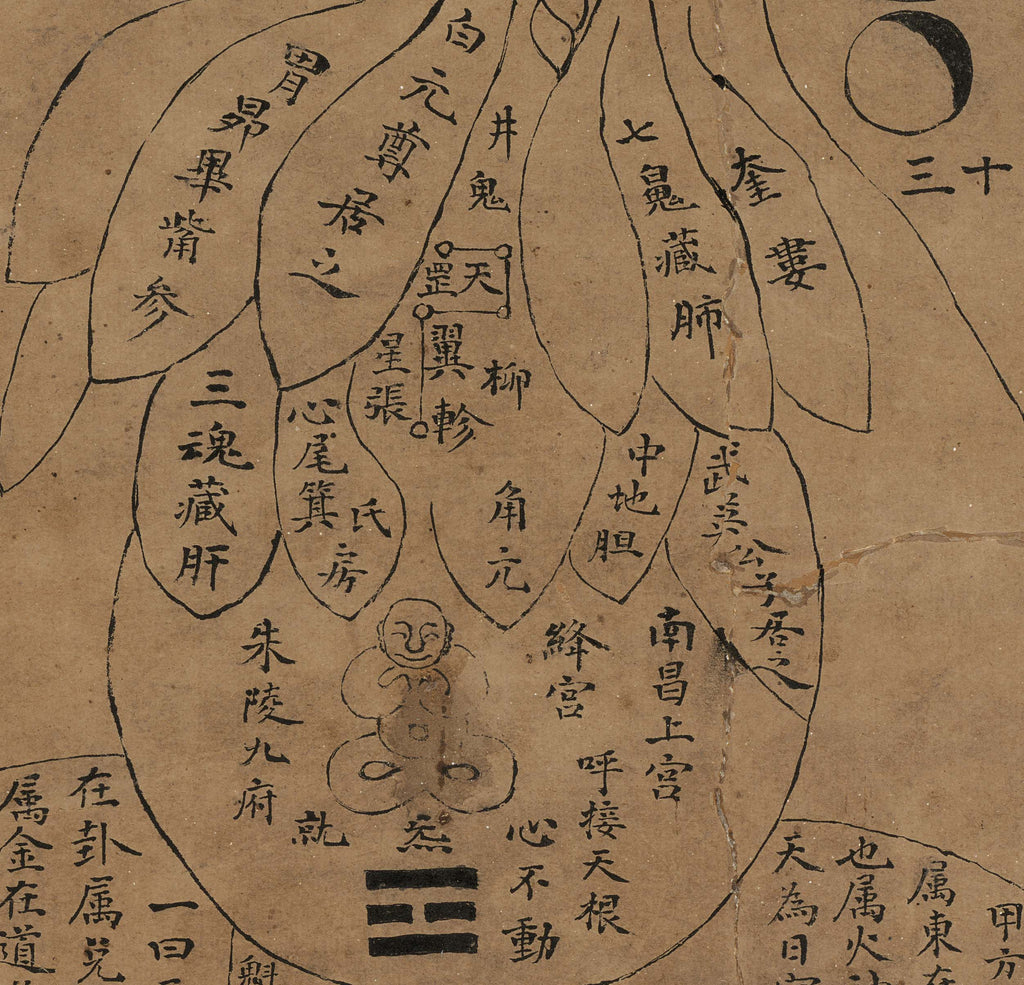 胃昴畢觜參
白元尊居之
井鬼
天罡
七魄藏肺
奎婁
十三
星張
翼軫
柳
三魂藏肝
心尾箕
氐房
角亢
中地胆
武英公子居之
朱陵九府
絳宮
南昌上宮
呼接天根
心不動
炁
就
在卦属兌
属金在道
一曰
魁
甲方
属東在
也属火
天為日